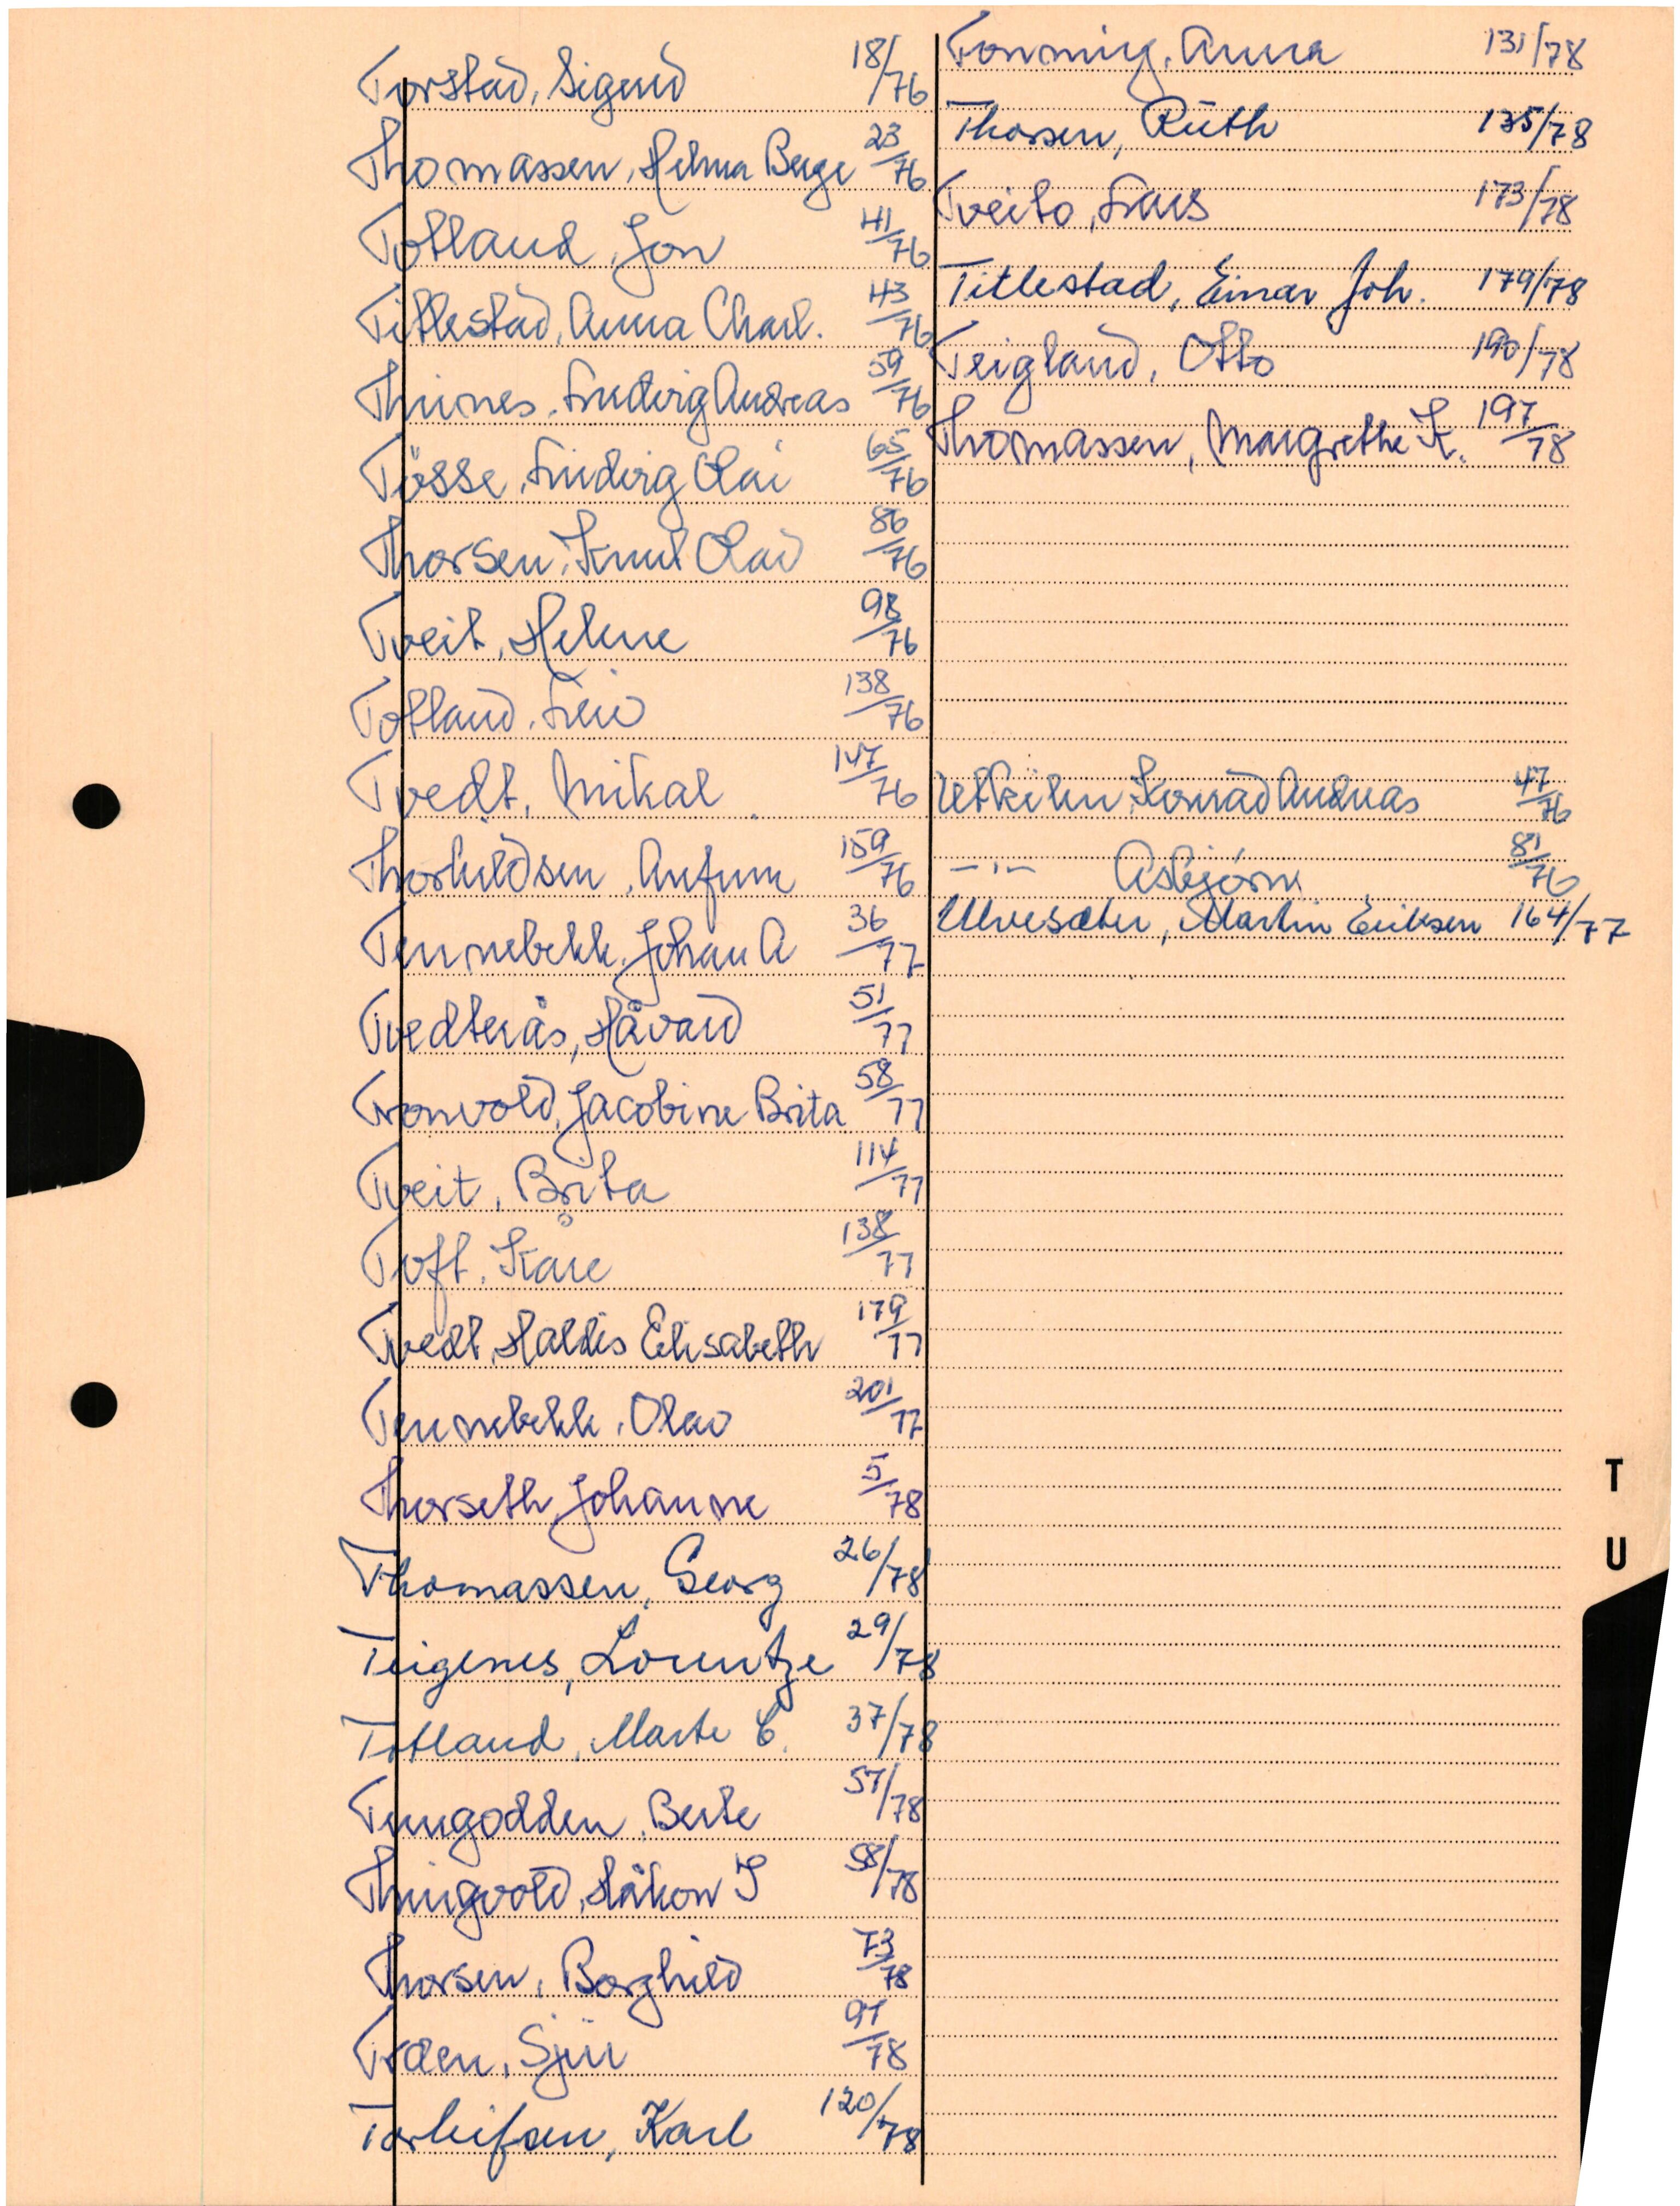 Torstad, Sigurd 18/76
Thomassen, Helma Berge 23/76
Totland, Jon 41/76
Titlestad, Anna Charl. 43/76
Thunes, Ludvig Andreas 59/76
Tösse, Ludvig Olai 65/76
Thorsen, Knut Olav 86/76
Tveit, Helene 98/76
Totland, Leiv 138/76
Tvedt, Mikal 147/76
Thorhildsen, Arnfinn 159/76
Tennebekk, Johan A 36/77
Tvedterås, Håvard 51/77
Tronvold, Jacobine Brita 58/77
Tveit, Brita 114/77
Toft, Kåre 138/77
Tvedt, Haldis Elisabeth 179/77
Tennebekk, Olav 201/77
Thorseth, Johanne 5/78
Thomassen, Georg 26/78
Teigenes, Lorentze 29/78
Totland, Marte C. 37/78
Tungodden, Berte 57/78
Thingvold, Håkon I 58/78
Thorsen, Borghild 73/78
Træn, Sjur 97/78
Torleifsen, Karl 120/78
Tonning, Anna 131/78
Thorsen, Ruth 135/78
Tveito, Lars 173/78
Titlestad, Einar Joh. 179/78
Teigland, Otto 190/78
Thomassen, Margrethe K. 197/78
Utkilen, Konrad Andreas 47/76
-"- Asbjørn 81/76
Ulvesæter, Martin Eriksen 164/77
T
U